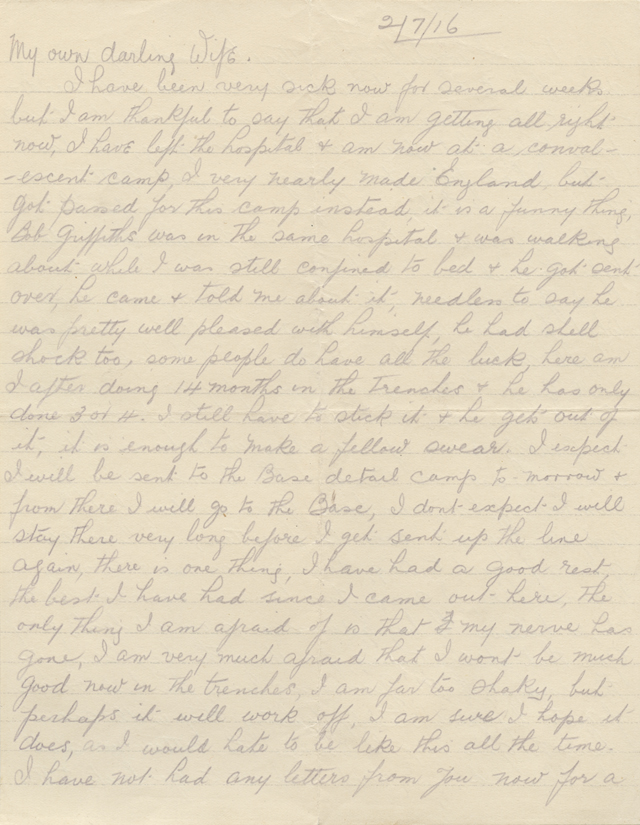 2/7/16
My own darling Wife.
I have been very sick now for several weeks
but I am thankful to say that I am getting all right
now, I have left the hospital & am now at a conval-
-escent camp, I very nearly made England but
got passed for this camp instead, it is a funny thing,
Bob Griffiths was in the same hospital & was walking
about while I was still confined to bed & he got sent
over, he came & told me about it, needless to say he
was pretty well pleased with himself, he had shell
shock too, some people do have all the luck, here am
I after doing 14 months in the trenches & he has only
done 3 or 4. I still have to stick it & he gets out of
it, it is enough to make a fellow swear. I expect
I will be sent to the Base detail camp to-morrow &
from there I will go to the Base, I dont expect I will
stay there very long before I get sent up the line
again, there is one thing, I have had a good rest,
the best I have had since I came out here, the
only thing I am afraid of is that my nerve has
gone, I am very much afraid that I wont be much
good now in the trenches, I am far too shaky, but
perhaps it will work off, I am sure I hope it
does, as I would hate to be like this all the time.
I have not had any letters from you now for a